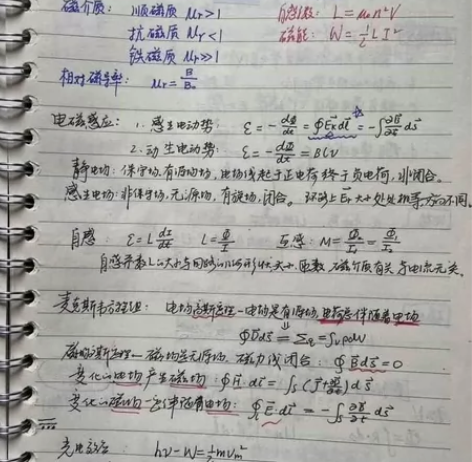 磁介质: 顺磁质 μr>1 自感系数: L=μ₀n²V
抗磁质 μr<1 磁能: W=½LI²
铁磁质 μr>>1
相对磁导率: μr=B/B₀
电磁感应: 1. 感生电动势: ε=-dΦ/dt=∮E⃗k dl⃗=-∫∂B⃗/∂t ds⃗
2. 动生电动势: ε=-dΦ/dt=BLV
静电场: 保守场,有源场,电场线起于正电荷,终于负电荷,非闭合。
感生电场: 非保守场,无源场,有旋场,闭合。 环路上Ek大小处处相等,方向不同。
自感: ε=L dI/dt L=Φ/I 互感: M=Φ₂/I₁=Φ₁/I₂
自感系数L的大小与回路的几何形状、大小、匝数、磁介质有关,与电流无关。
麦克斯韦方程组: 电场高斯定理—电场是有源场,电荷总伴随着电场
∮D⃗ds⃗=Σq=∫ᵥρdV
磁场高斯定理—磁场是无源场,磁力线闭合: ∮B⃗ds⃗=0
变化的电场产生磁场: ∮H⃗·dl⃗=∫s(J⃗+∂D⃗/∂t)ds⃗
变化的磁场一定伴随着电场: ∮E⃗·dl⃗=-∫s ∂B⃗/∂t ds⃗
三
光电效应 hν-W=½mVm²